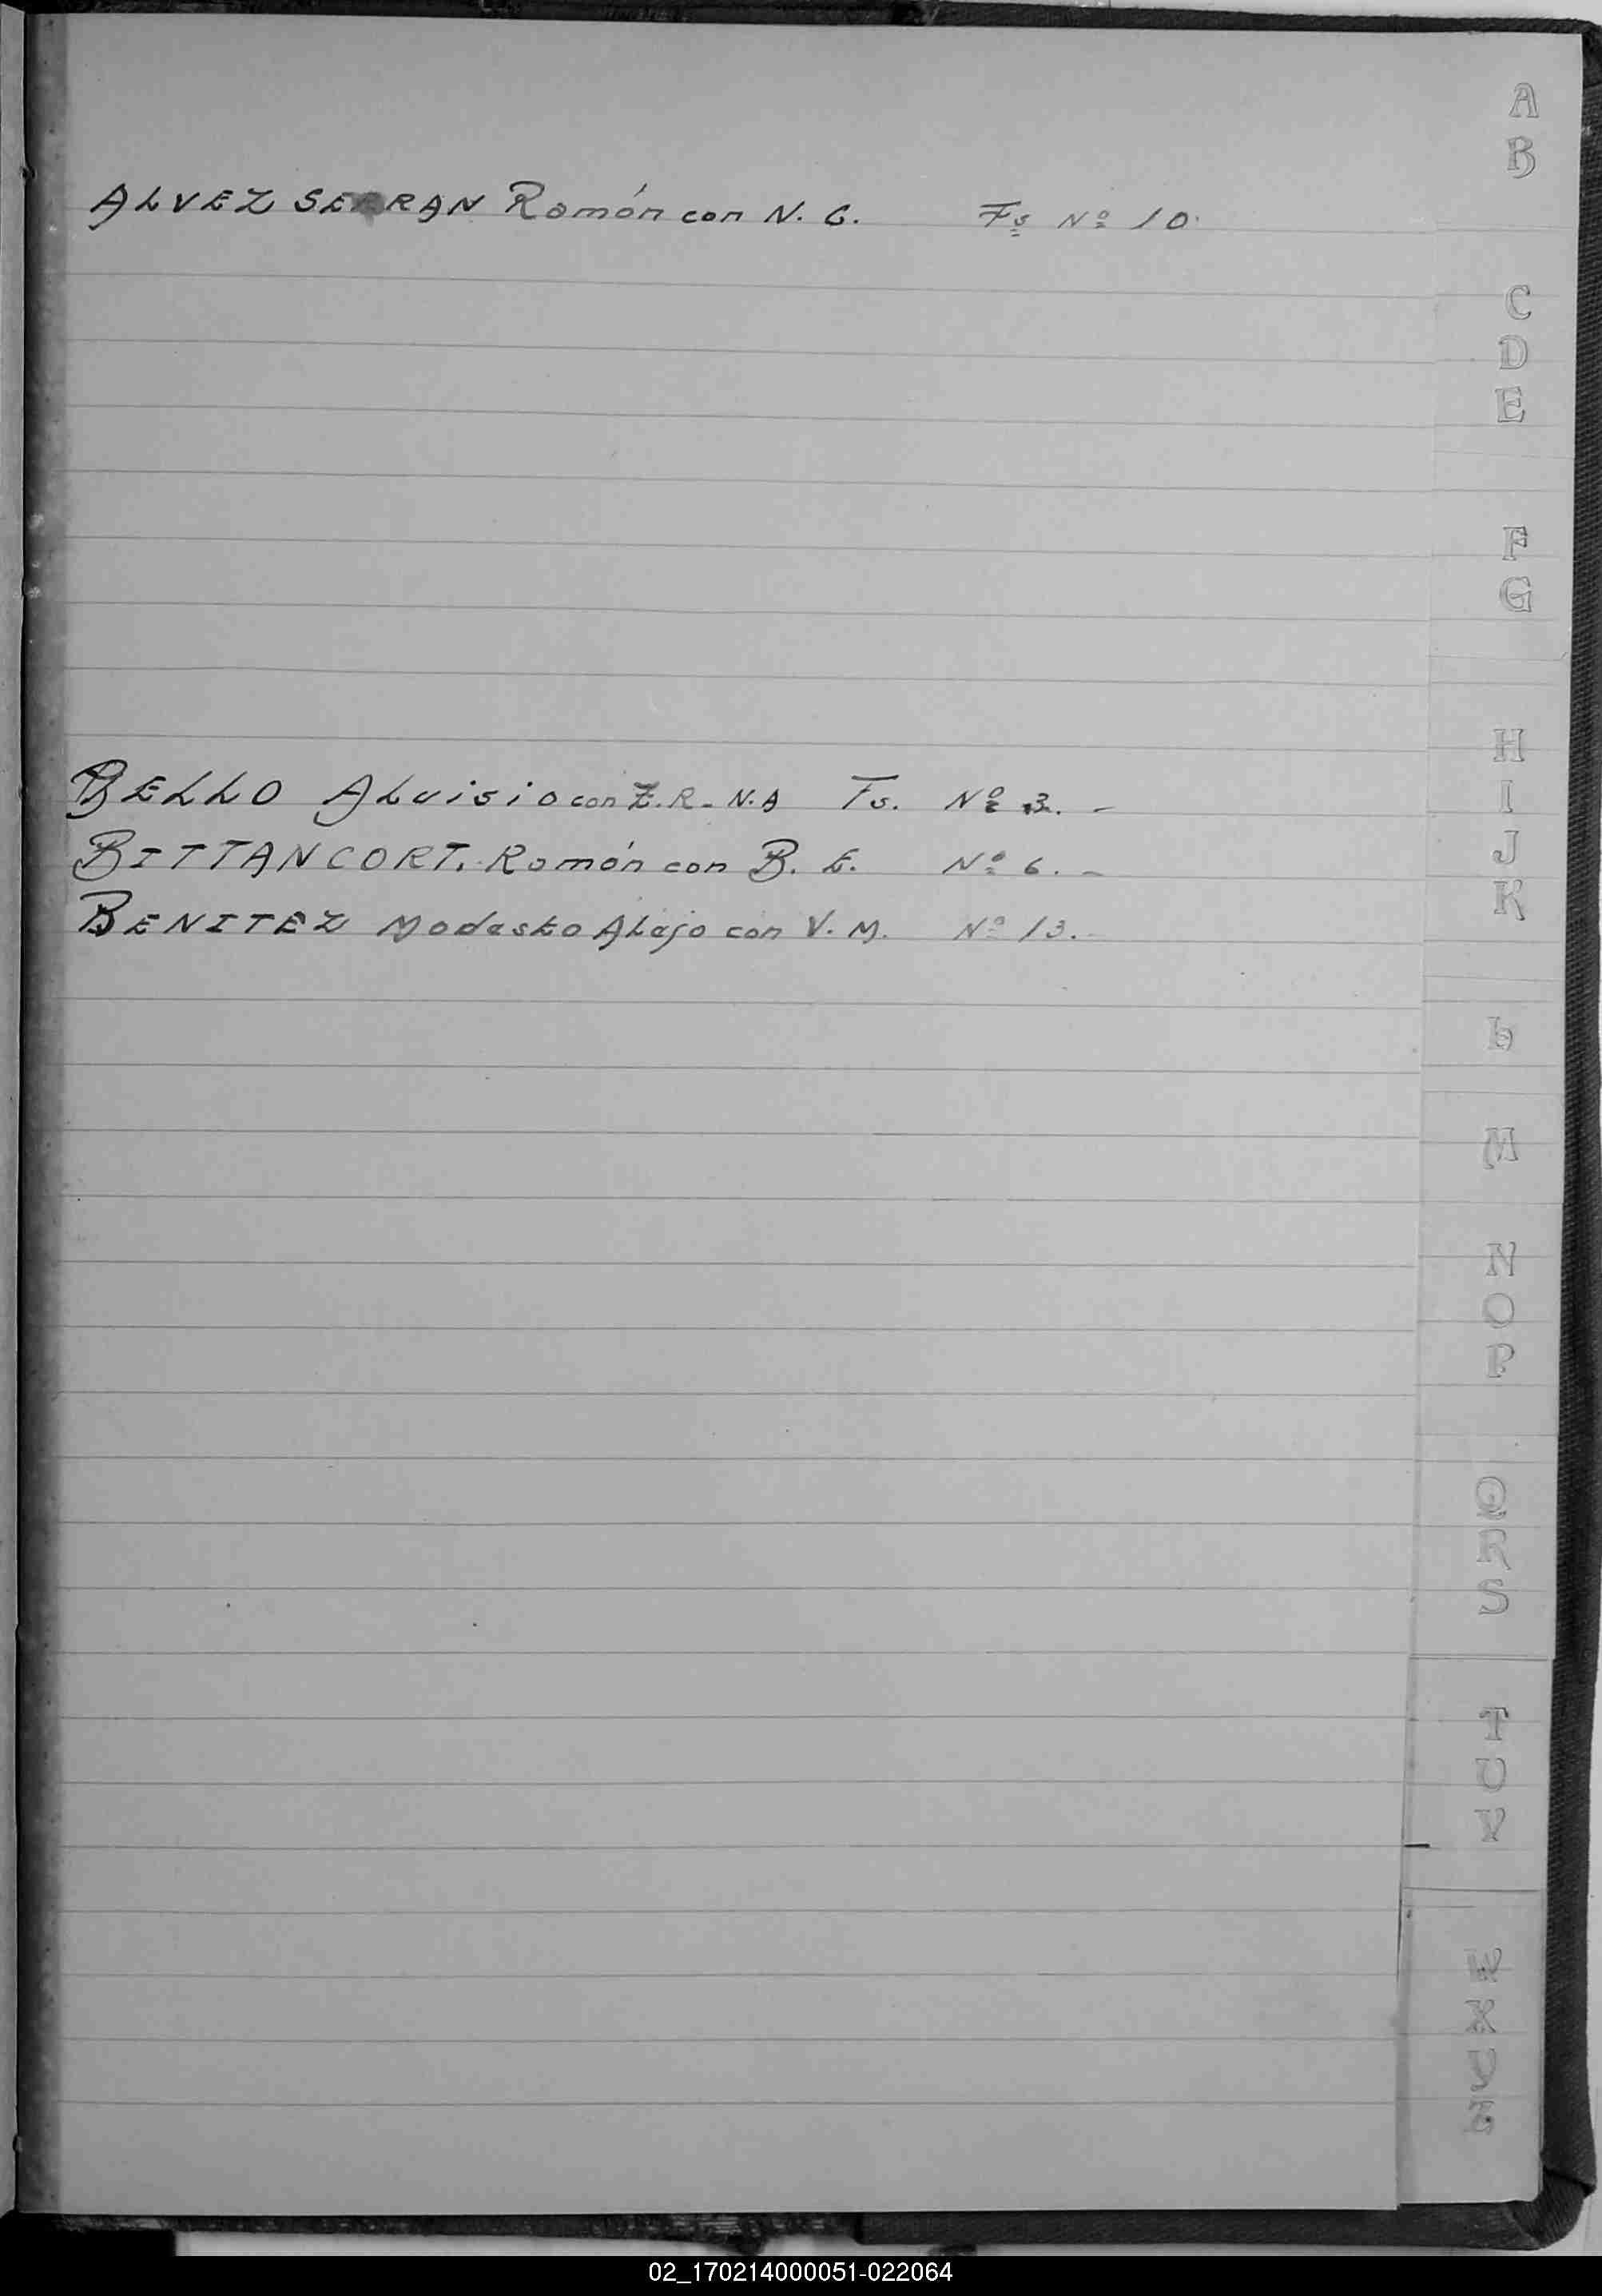 ALVEZ SERRAN Ramón con N. G. Fs Nº 10.
BELLO Aluisio con Z. R. N. A Fs. Nº 3. -
BITTANCORT. Ramón con B. E. Nº 6. -
BENITEZ Modesto Alejo con V. M. Nº 13. -
A
B
C
D
E
F
G
H
I
J
K
L
M
N
O
P
Q
R
S
T
U
V
X
02_170214000051-022064